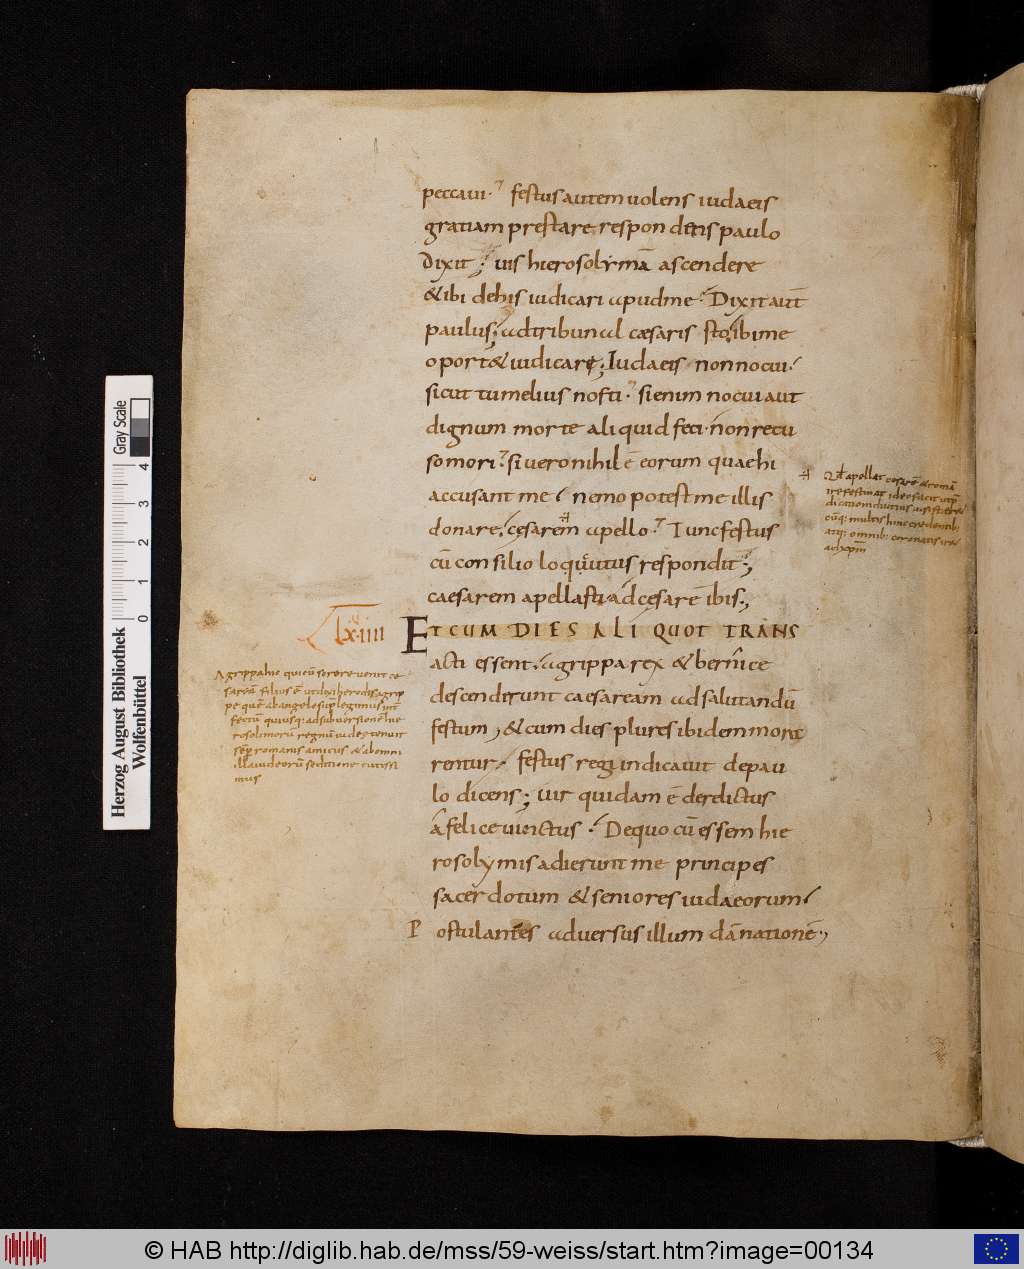 peccaui · festus autem uolens iudaeis
gratiam prestare respondens paulo
dixit; uis hierosolymā ascendere
& ibi de his iudicari apud me · Dixit aut̄
paulus; ad tribunal cæsaris sto, ibi me
oport& iudicari; Iudaeis non nocui
sicut tu melius nosti · si enim nocui aut
dignum morte aliquid feci · non recu
so mori · si uero nihil ē eorum quae hi
accusant me nemo potest me illis
donare, cesarem apello · Tunc festus
cū consilio loquutus respondit;
caesarem apellasti ad cesarē ibis;
lxiiii
ET CUM DIES ALIQUOT TRANS
acti essent · agrippa rex & bernice
descenderunt caesaream ad salutandū
festum, & cum dies plures ibidem mora
rentur, festus regi indicauit de pau
lo dicens; uir quidam ē derelictus
a felice uinctus · De quo cū essem hie
rosolymis adierunt me principes
sacerdotum & seniores iudaeorum
Postulantes aduersus illum dānationē,
apellat cesarē
Agrippa
filius ē
legimus
hie
rosolimorū regnū
romanis amicus & ab omni
illa iudeorū seditione
mus
Herzog August Bibliothek
Wolfenbüttel
Gray Scale
0 1 2 3 4
© HAB http://diglib.hab.de/mss/59-weiss/start.htm?image=00134